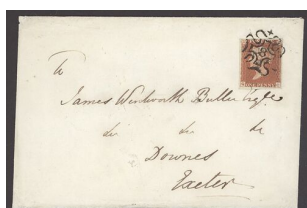 To
James Wentworth Buller Esqre
&c &c &c
Downes
Exeter